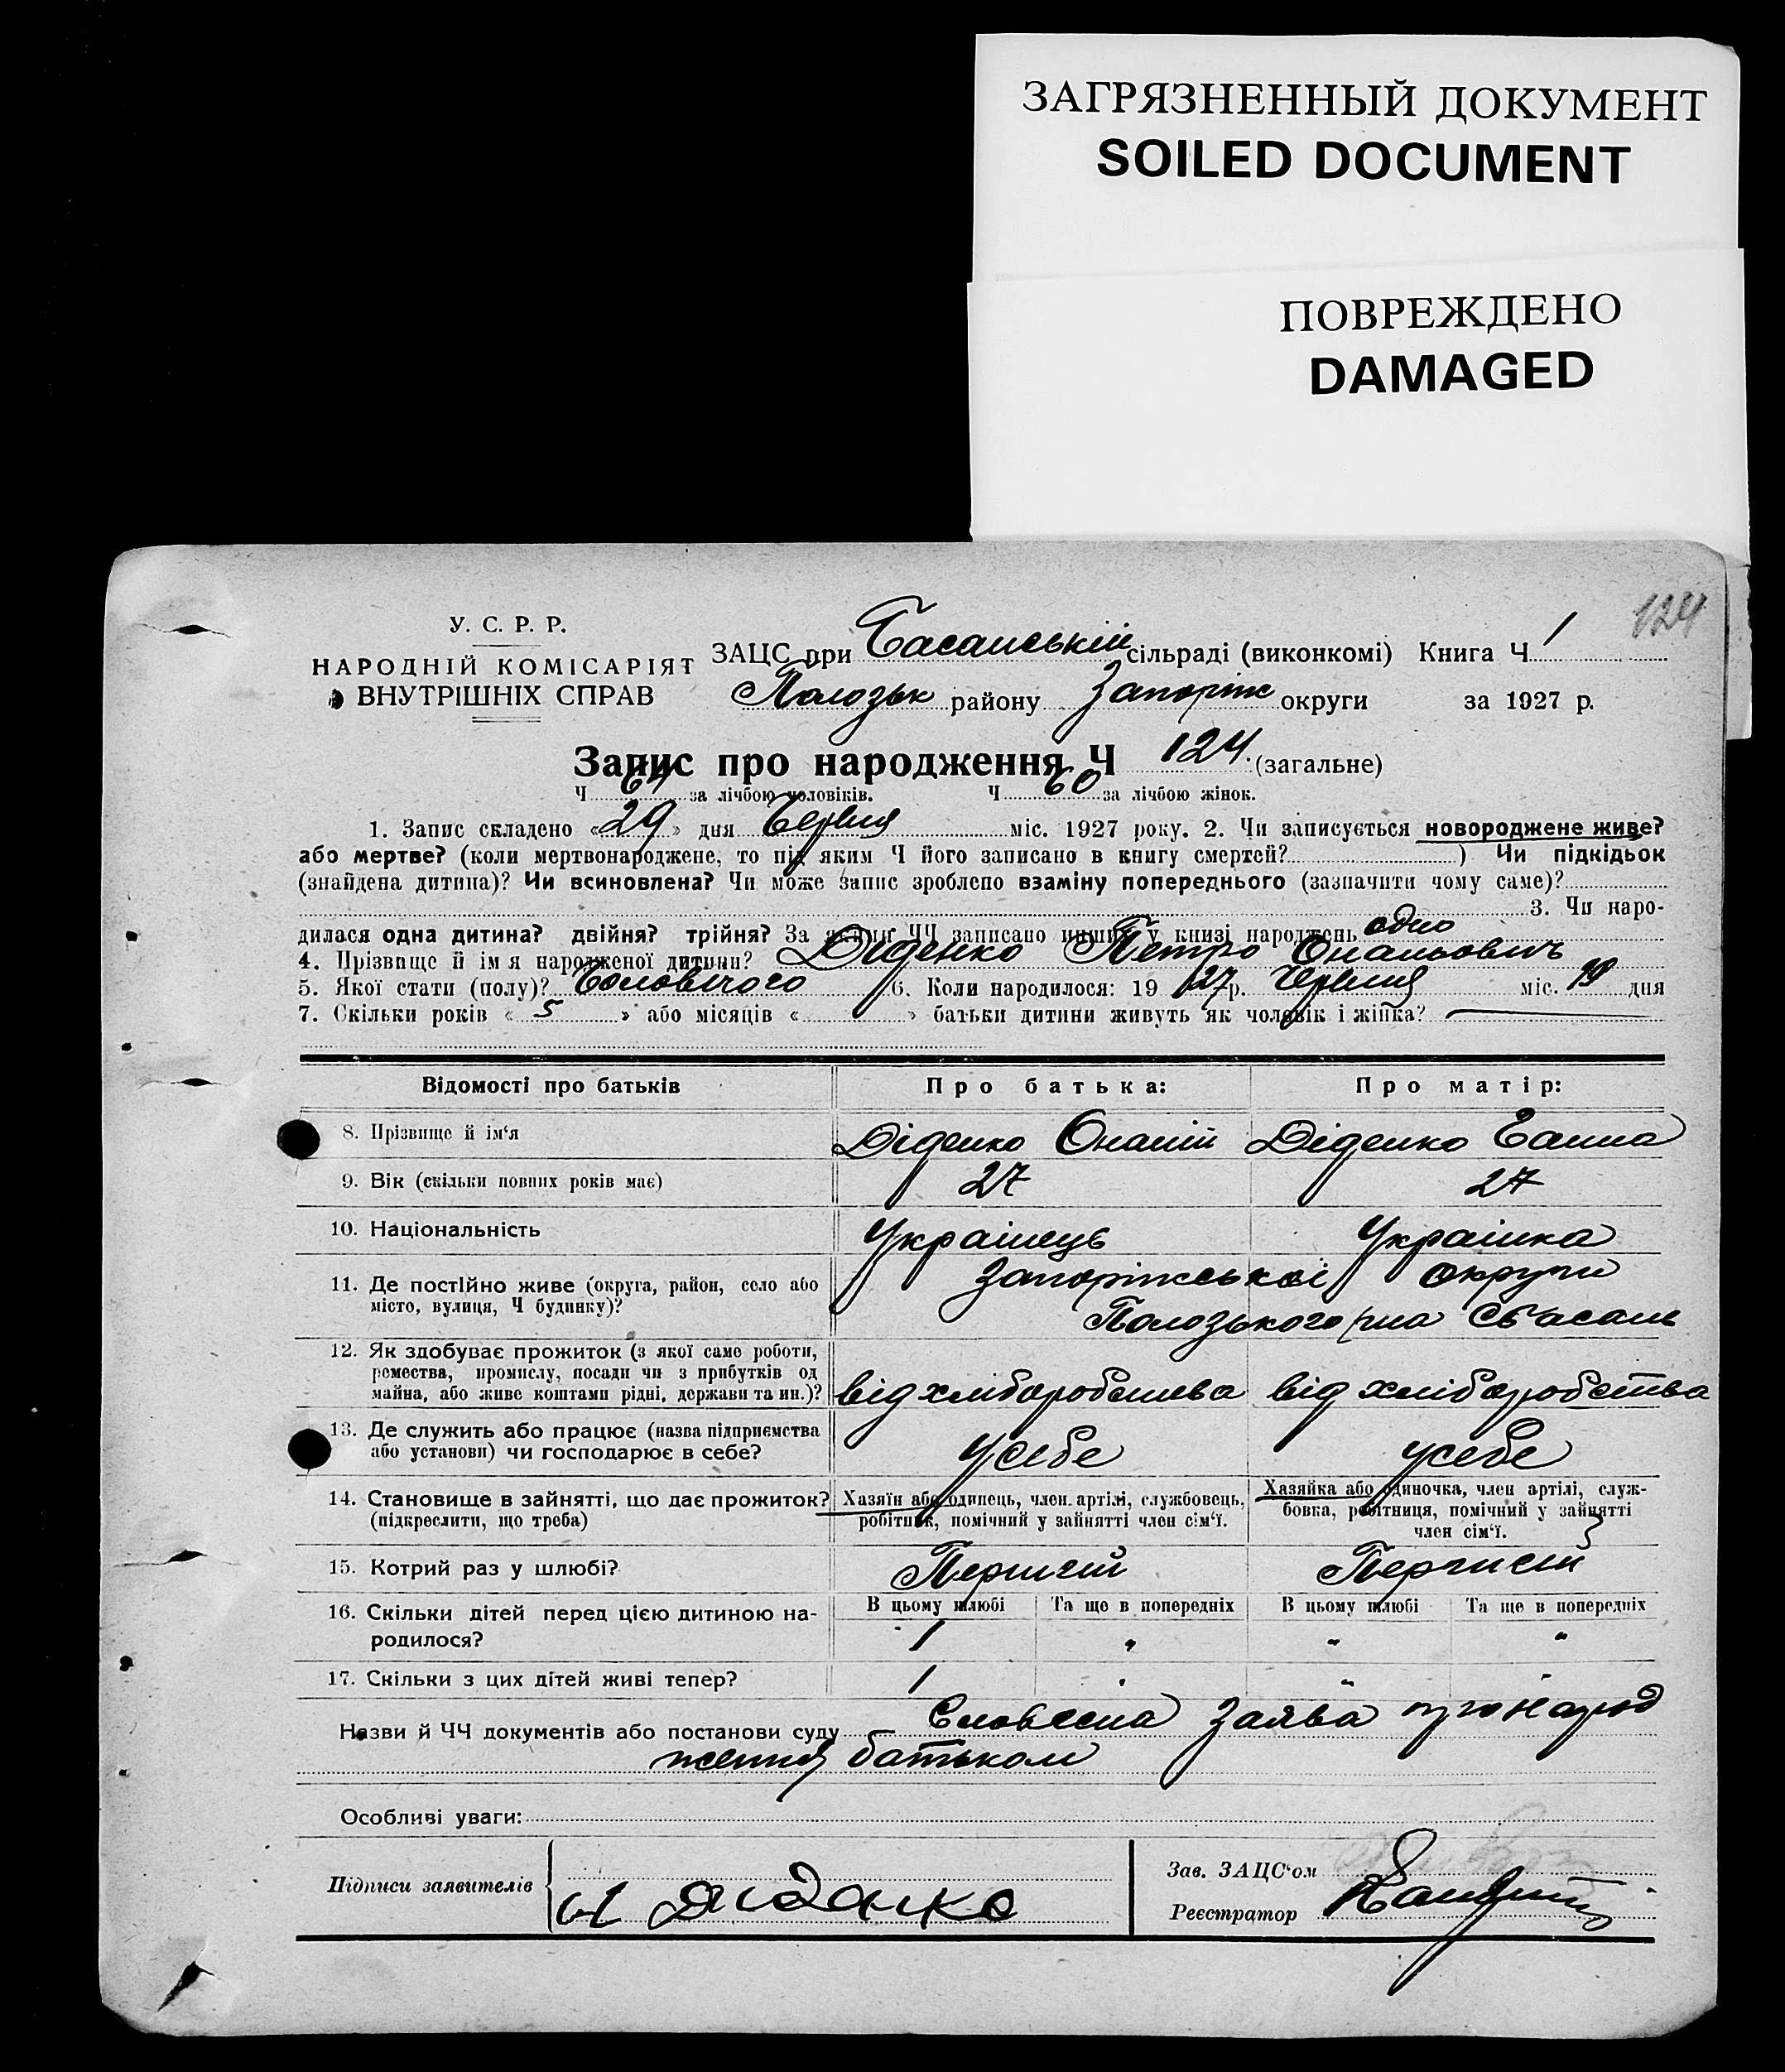 ЗАГРЯЗНЕННЫЙ ДОКУМЕНТ
SOILED DOCUMENT
ПОВРЕЖДЕНО
DAMAGED
124
У. С. Р. Р.
НАРОДНІЙ КОМІСАРІЯТ
ВНУТРІШНІХ СПРАВ
ЗАЦС при Басанській сільраді (виконкомі) Книга Ч 1
Полозьк району Запоріж округи за 1927 р.
Запис про народження Ч 124. (загальне)
Ч 64 за лічбою чоловіків. Ч 60 за лічбою жінок.
1. Запис складено «29» дня Червня міс. 1927 року. 2. Чи записується новороджене живе?
або мертве? (коли мертвонароджене, то під яким Ч його записано в книгу смертей? ) Чи підкідьок
(знайдена дитина)? Чи всиновлена? Чи може запис зроблено взаміну попереднього (зазначити чому саме)?
3. Чи наро-
дилася одна дитина? двійня? трійня? За якими ЧЧ записано инших у книзі народжень одно
4. Прізвище й ім я народженої дитини? Діденко Петро Онаньович
5. Якої стати (полу)? Чоловічого 6. Коли народилося: 19 27 р. Червня міс. 19 дня
7. Скільки років « 5 » або місяців « » батьки дитини живуть як чоловік і жінка?
Відомості про батьків Про батька: Про матір:
8. Прізвище й ім‘я Діденко Онаній Діденко Ганна
9. Вік (скільки повних років має) 27 27
10. Національність Українець Українка
11. Де постійно живе (округа, район, село або Запоріжської округи
місто, вулиця, Ч будинку)? Полозького р/на С Басань
12. Як здобуває прожиток (з якої саме роботи,
ремества, промислу, посади чи з прибутків од
майна, або живе коштами рідні, держави та ин.)? від хліборобства від хліборобства
13. Де служить або працює (назва підприємства
або установи) чи господарює в себе? у себе у себе
14. Становище в зайнятті, що дає прожиток? Хазяїн або одинець, член артілі, службовець, Хазяйка або одиночка, член артілі, служ-
(підкреслити, що треба) робітник, помічний у зайнятті член сім‘ї. бовка, робітниця, помічний у зайнятті
член сім‘ї.
15. Котрий раз у шлюбі? Перший Перший
16. Скільки дітей перед цією дитиною на- В цьому шлюбі Та ще в попередніх В цьому шлюбі Та ще в попередніх
родилося? 1 " " "
17. Скільки з цих дітей живі тепер? 1 " " "
Назви й ЧЧ документів або постанови суду Словесна заява про народ
ження батьком
Особливі уваги:
Підписи заявителів Діданко
Зав. ЗАЦС‘ом
Реєстратор